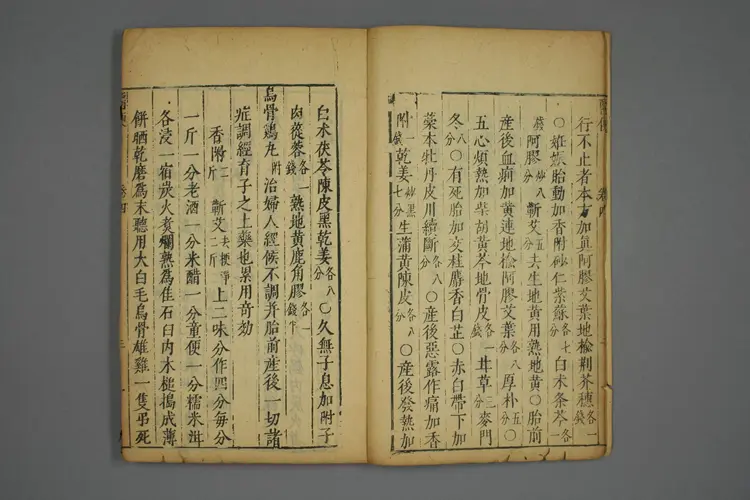 行不止者本方加真阿膠艾葉地榆荆芥穗各一錢
○姙娠胎動加香附砂仁紫蘇各七分白朮条芩各一錢
阿膠炒八分蘄艾五分去生地黃用熟地黃○胎前
產後血崩加黃連地榆阿膠艾葉各八分厚朴五分○
五心煩熱加柴胡黃芩地骨皮各一錢甘草三分麥門
冬八分○有死胎加交桂麝香白芷○赤白帶下加
藁本牡丹皮川續斷各八分○產後惡露作痛加香
附一錢乾姜炒黑七分生蒲黃陳皮各八分○產後發熱加
白朮茯苓陳皮黑乾姜各八分○久無子息加附子
肉蓯蓉各一錢熟地黃鹿角膠各一錢
烏骨鷄丸附治婦人經候不調并胎前產後一切諸
症調經育子之上藥也累用奇効
香附二斤蘄艾去梗淨二斤上二味分作四分每分
一斤一分老酒一分米醋一分童便一分糯米泔
各浸一宿炭火煑爛熟爲佳石臼内木槌搗成薄
餅晒乾磨爲末聽用大白毛烏骨雄雞一隻弔死